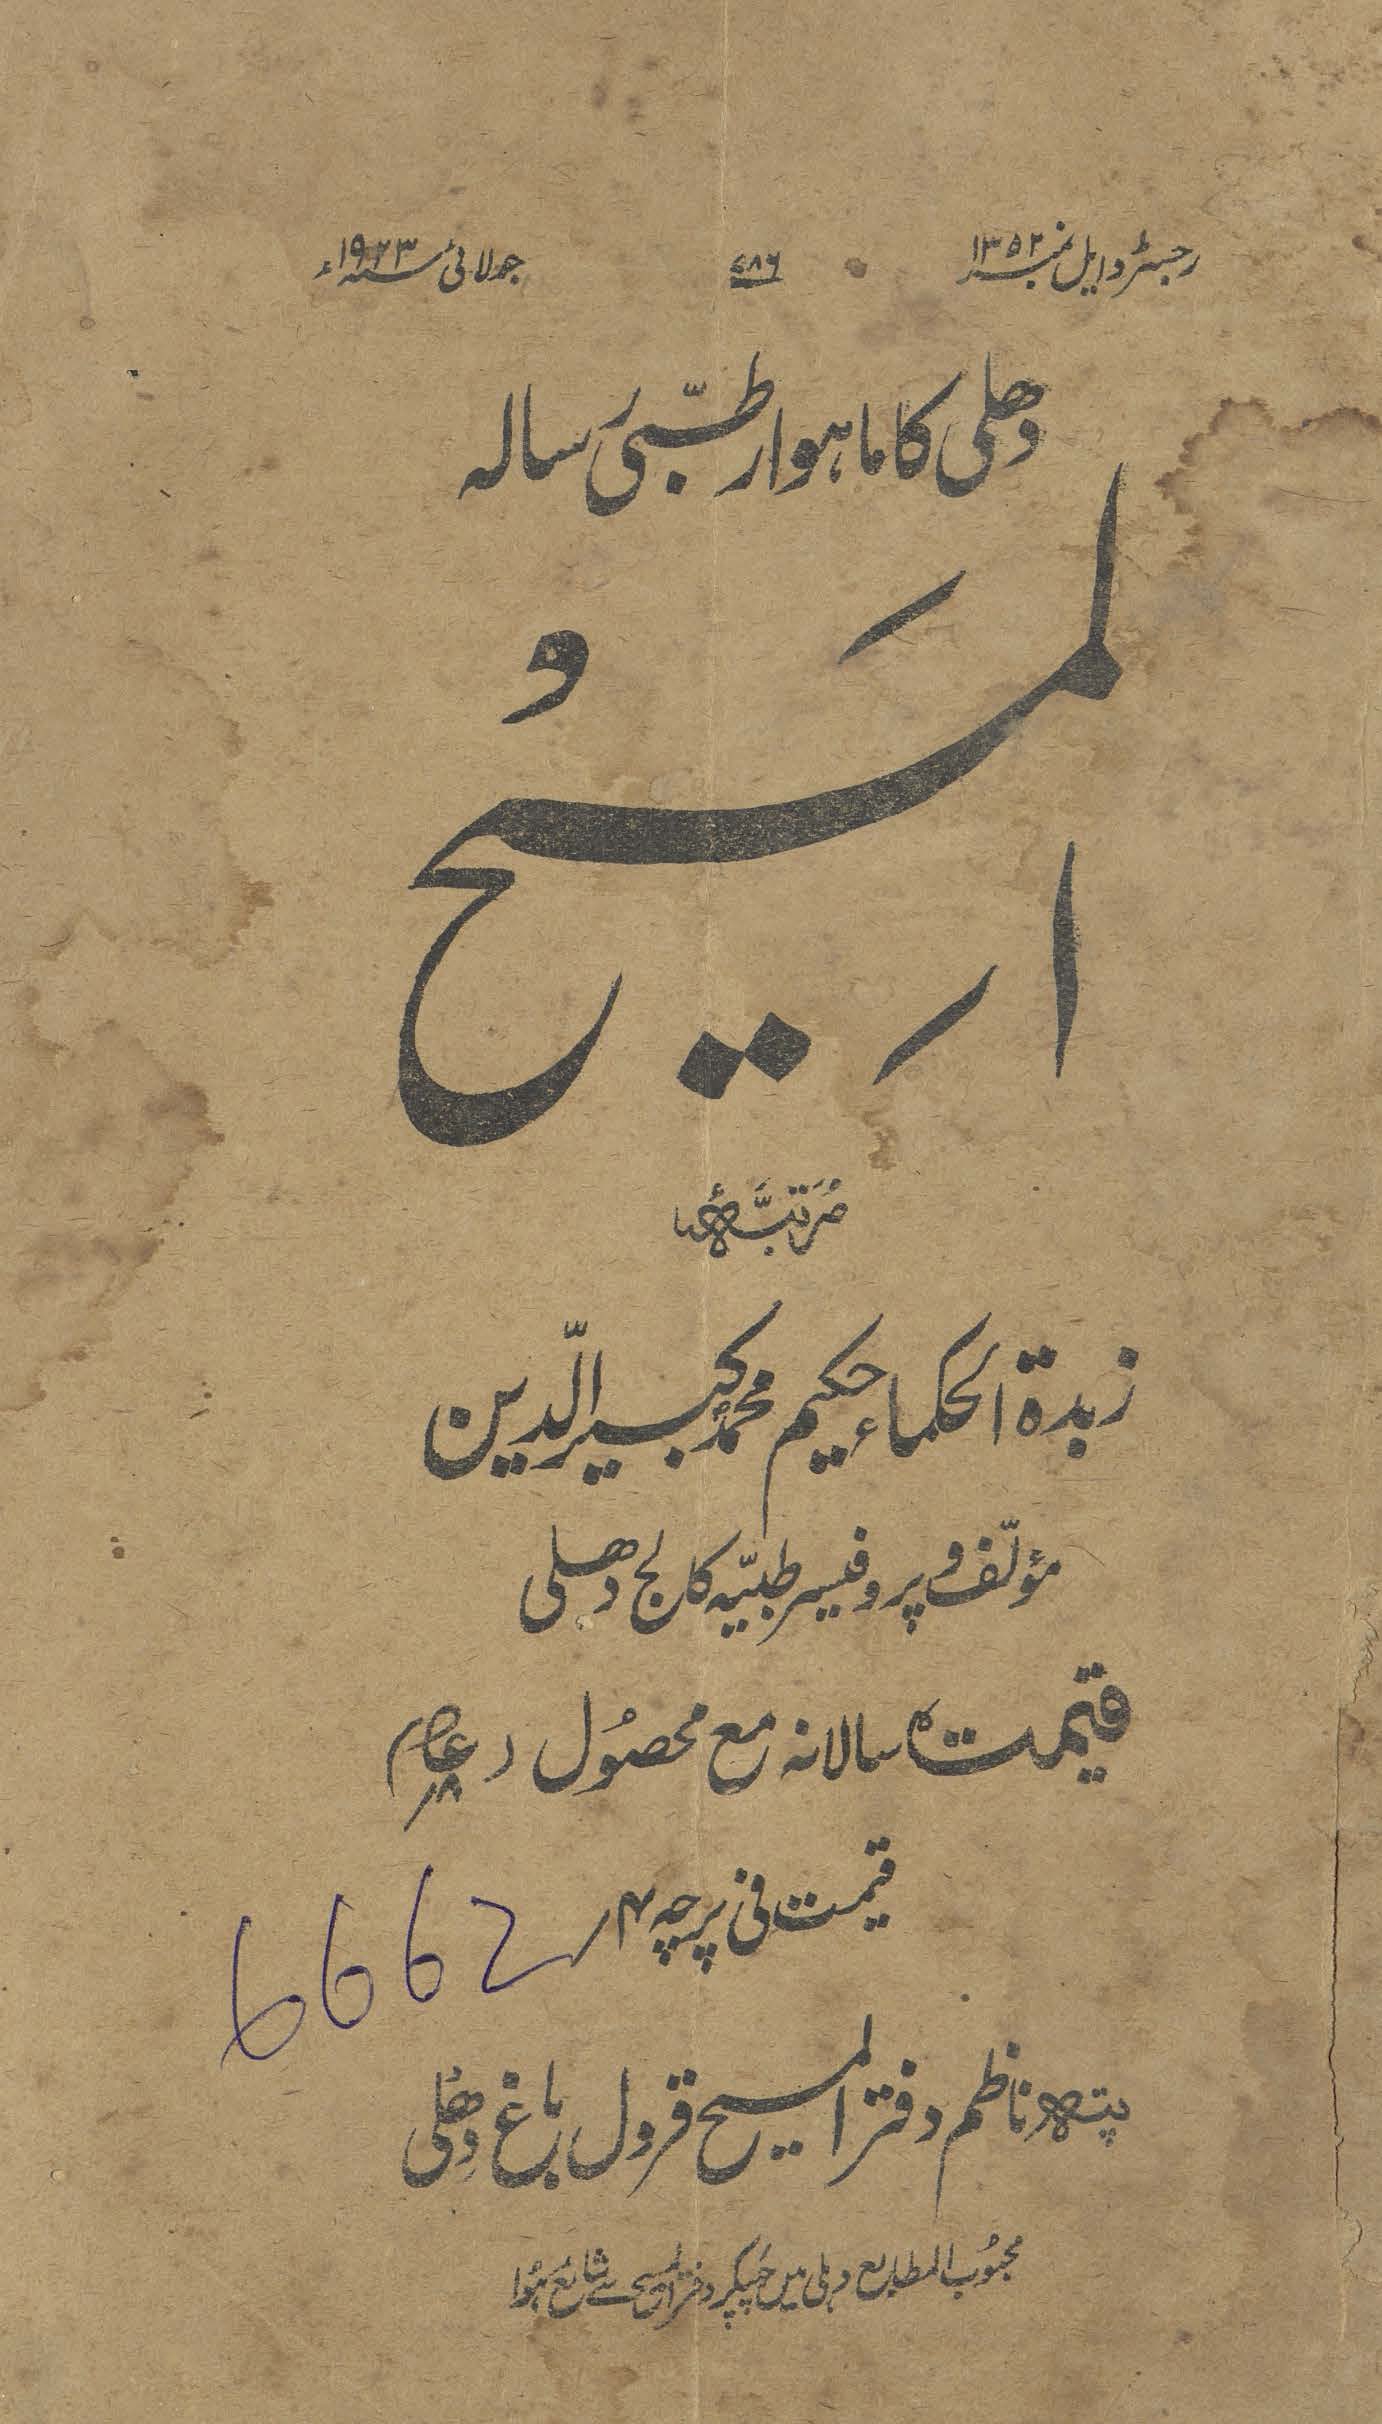 رجسٹرڈ ایل نمبر ۱۳۵۲
۷۸۶
جولائی سنہ ۱۹۲۳ء
دھلی کا ماہوار طبّی رسالہ
المَسِیحُ
مُرَتَّبَہٗ
زبدۃ الحکماء حکیم محمد کبیر الدّین
مؤلّف و پروفیسر طبیّہ کالج دھلی
قیمت سالانہ مع محصُول
قیمت فی پرچہ ۴؍
6662
پتہ ناظم دفتر المسیح قرول باغ دھلی
محبُوب المطابع دہلی میں چھپکر دفتر المسیح سے شائع ہُوا